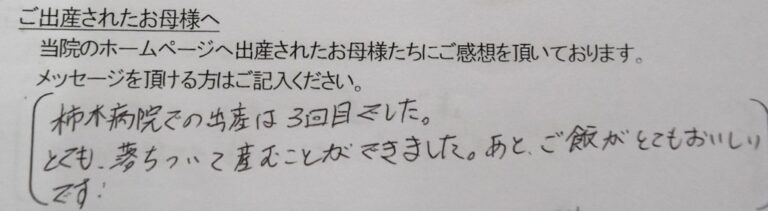 ご出産されたお母様へ
当院のホームページへ出産されたお母様たちにご感想を頂いております。
メッセージを頂ける方はご記入ください。
柿木病院での出産は3回目でした。
とても、落ちついて産むことができました。あと、ご飯がとてもおいしい
です!